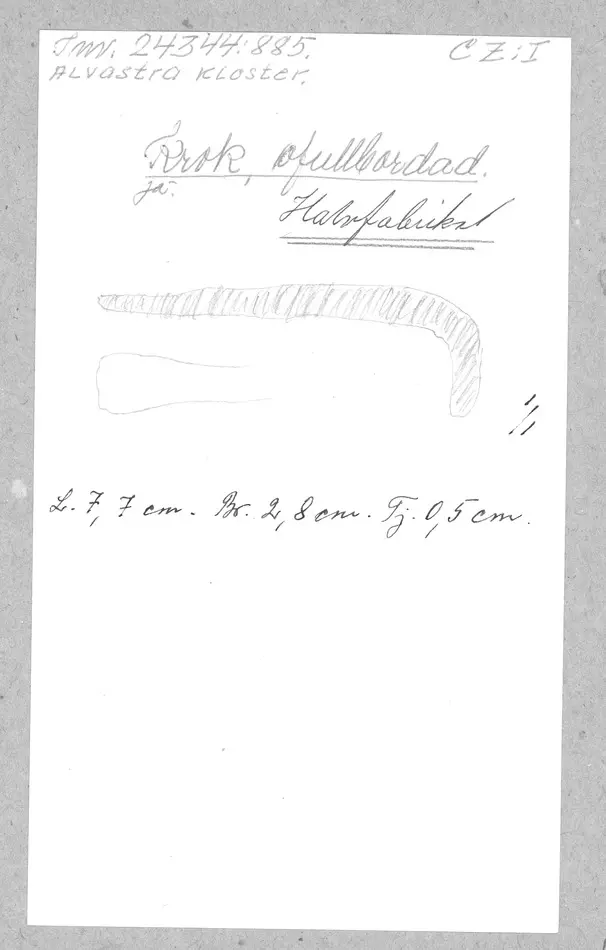 Inv. 24344:885. CZ:I
Alvastra Kloster.
Krok, ofullbordad.
jä.
Halvfabrikat
1/1
L. 7,7 cm. Br. 2,8 cm. Tj. 0,5 cm.